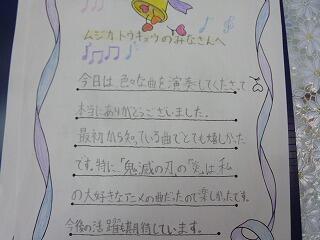 ムジカトウキョウのみなさんへ
今日は色々な曲を演奏してくださって
本当にありがとうございました。
最初から知っている曲でとても嬉しかった
です。特に、「鬼滅の刃」の「炎」は私
の大好きなアニメの曲だったので楽しかったです。
今後の活躍も期待しています。